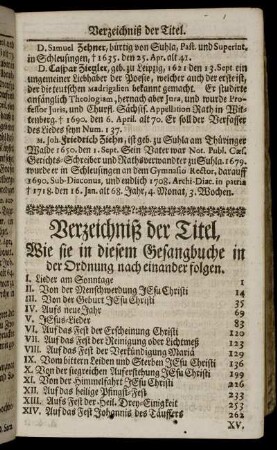 Verzeichniß der Titel.
D. Samuel Zehner, bürtig von Suhla, Past. und Superint.
in Schleusingen, † 1635. den 25. Apr. alt 41.
D. Caspar Ziegler, geb. zu Leipzig, 1621 den 13. Sept ein
ungemeiner Liebhaber der Poesie, welcher auch der erste ist,
der die teutschen Madrigalien bekannt gemacht. Er studirte
anfänglich Theologiam, hernach aber Jura, und wurde Pro-
fessor Juris, und Churfl. Sächsl. Appellation Rath in Wit-
tenberg. † 1690. den 6. April. alt 70. Er soll der Verfasser
des Liedes seyn Num. 137.
M. Joh. Friedrich Ziehn, ist geb. zu Suhla am Thüringer
Walde 1650. den 1. Sept. Sein Vater war Not. Publ. Cæs.
Gerichts-Schreiber und Rathsverwandter zu Suhla. 1679.
wurder M in Schleusingen an dem Gymnasio Rector, darauff
1690. Sub-Diaconus, und endlich 1708. Archi-Diac. in patria
† 1718. den 16. Jan. alt 68. Jahr, 4. Monat, 3. Wochen.
Verzeichniß der Titel,
Wie sie in diesem Gesangbuche in
der Ordnung nach einander folgen.
I. Lieder am Sonntage 1
II. Von der Menschwerdung JEsu Christi 14
III. Von der Geburt JEsu Christi 35
IV. Aufs neue Jahr 69
V. JEsus-Lieder 83
VI. Auf das Fest der Erscheinung Christi 120
VII. Auf das Fest der Reinigung oder Lichtmeß 123
VIII. Auf das Fest der Verkündigung Mariä 129
IX. Vom bittern Leiden und Sterben JEsu Christi 136
X. Von der siegreichen Auferstehung JEsu Christi 199
XI. Von der Himmelfahrt JEsu Christi 226
XII. Auf das heilige Pfingst-Fest 232
XIII. Aufs Fest der Heil. Drey-Einigkeit 253
XIV. Auf das Fest Johannis des Täuffers 262
XV.